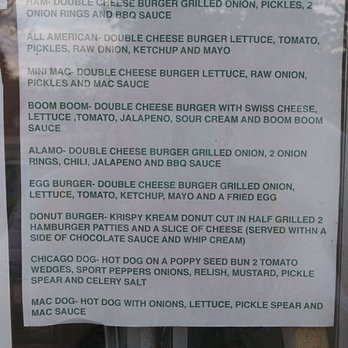 RAM- DOUBLE CHEESE BURGER GRILLED ONION, PICKLES, 2
ONION RINGS AND BBQ SAUCE
ALL AMERICAN- DOUBLE CHEESE BURGER LETTUCE, TOMATO,
PICKLES, RAW ONION, KETCHUP AND MAYO
MINI MAC- DOUBLE CHEESE BURGER LETTUCE, RAW ONION,
PICKLES AND MAC SAUCE
BOOM BOOM- DOUBLE CHEESE BURGER WITH SWISS CHEESE,
LETTUCE ,TOMATO, JALAPENO, SOUR CREAM AND BOOM BOOM
SAUCE
ALAMO- DOUBLE CHEESE BURGER GRILLED ONION, 2 ONION
RINGS, CHILI, JALAPENO AND BBQ SAUCE
EGG BURGER- DOUBLE CHEESE BURGER GRILLED ONION,
LETTUCE, TOMATO, KETCHUP, MAYO AND A FRIED EGG
DONUT BURGER- KRISPY KREAM DONUT CUT IN HALF GRILLED 2
HAMBURGER PATTIES AND A SLICE OF CHEESE (SERVED WITHN A
SIDE OF CHOCOLATE SAUCE AND WHIP CREAM)
CHICAGO DOG- HOT DOG ON A POPPY SEED BUN 2 TOMATO
WEDGES, SPORT PEPPERS ONIONS, RELISH, MUSTARD, PICKLE
SPEAR AND CELERY SALT
MAC DOG- HOT DOG WITH ONIONS, LETTUCE, PICKLE SPEAR AND
MAC SAUCE